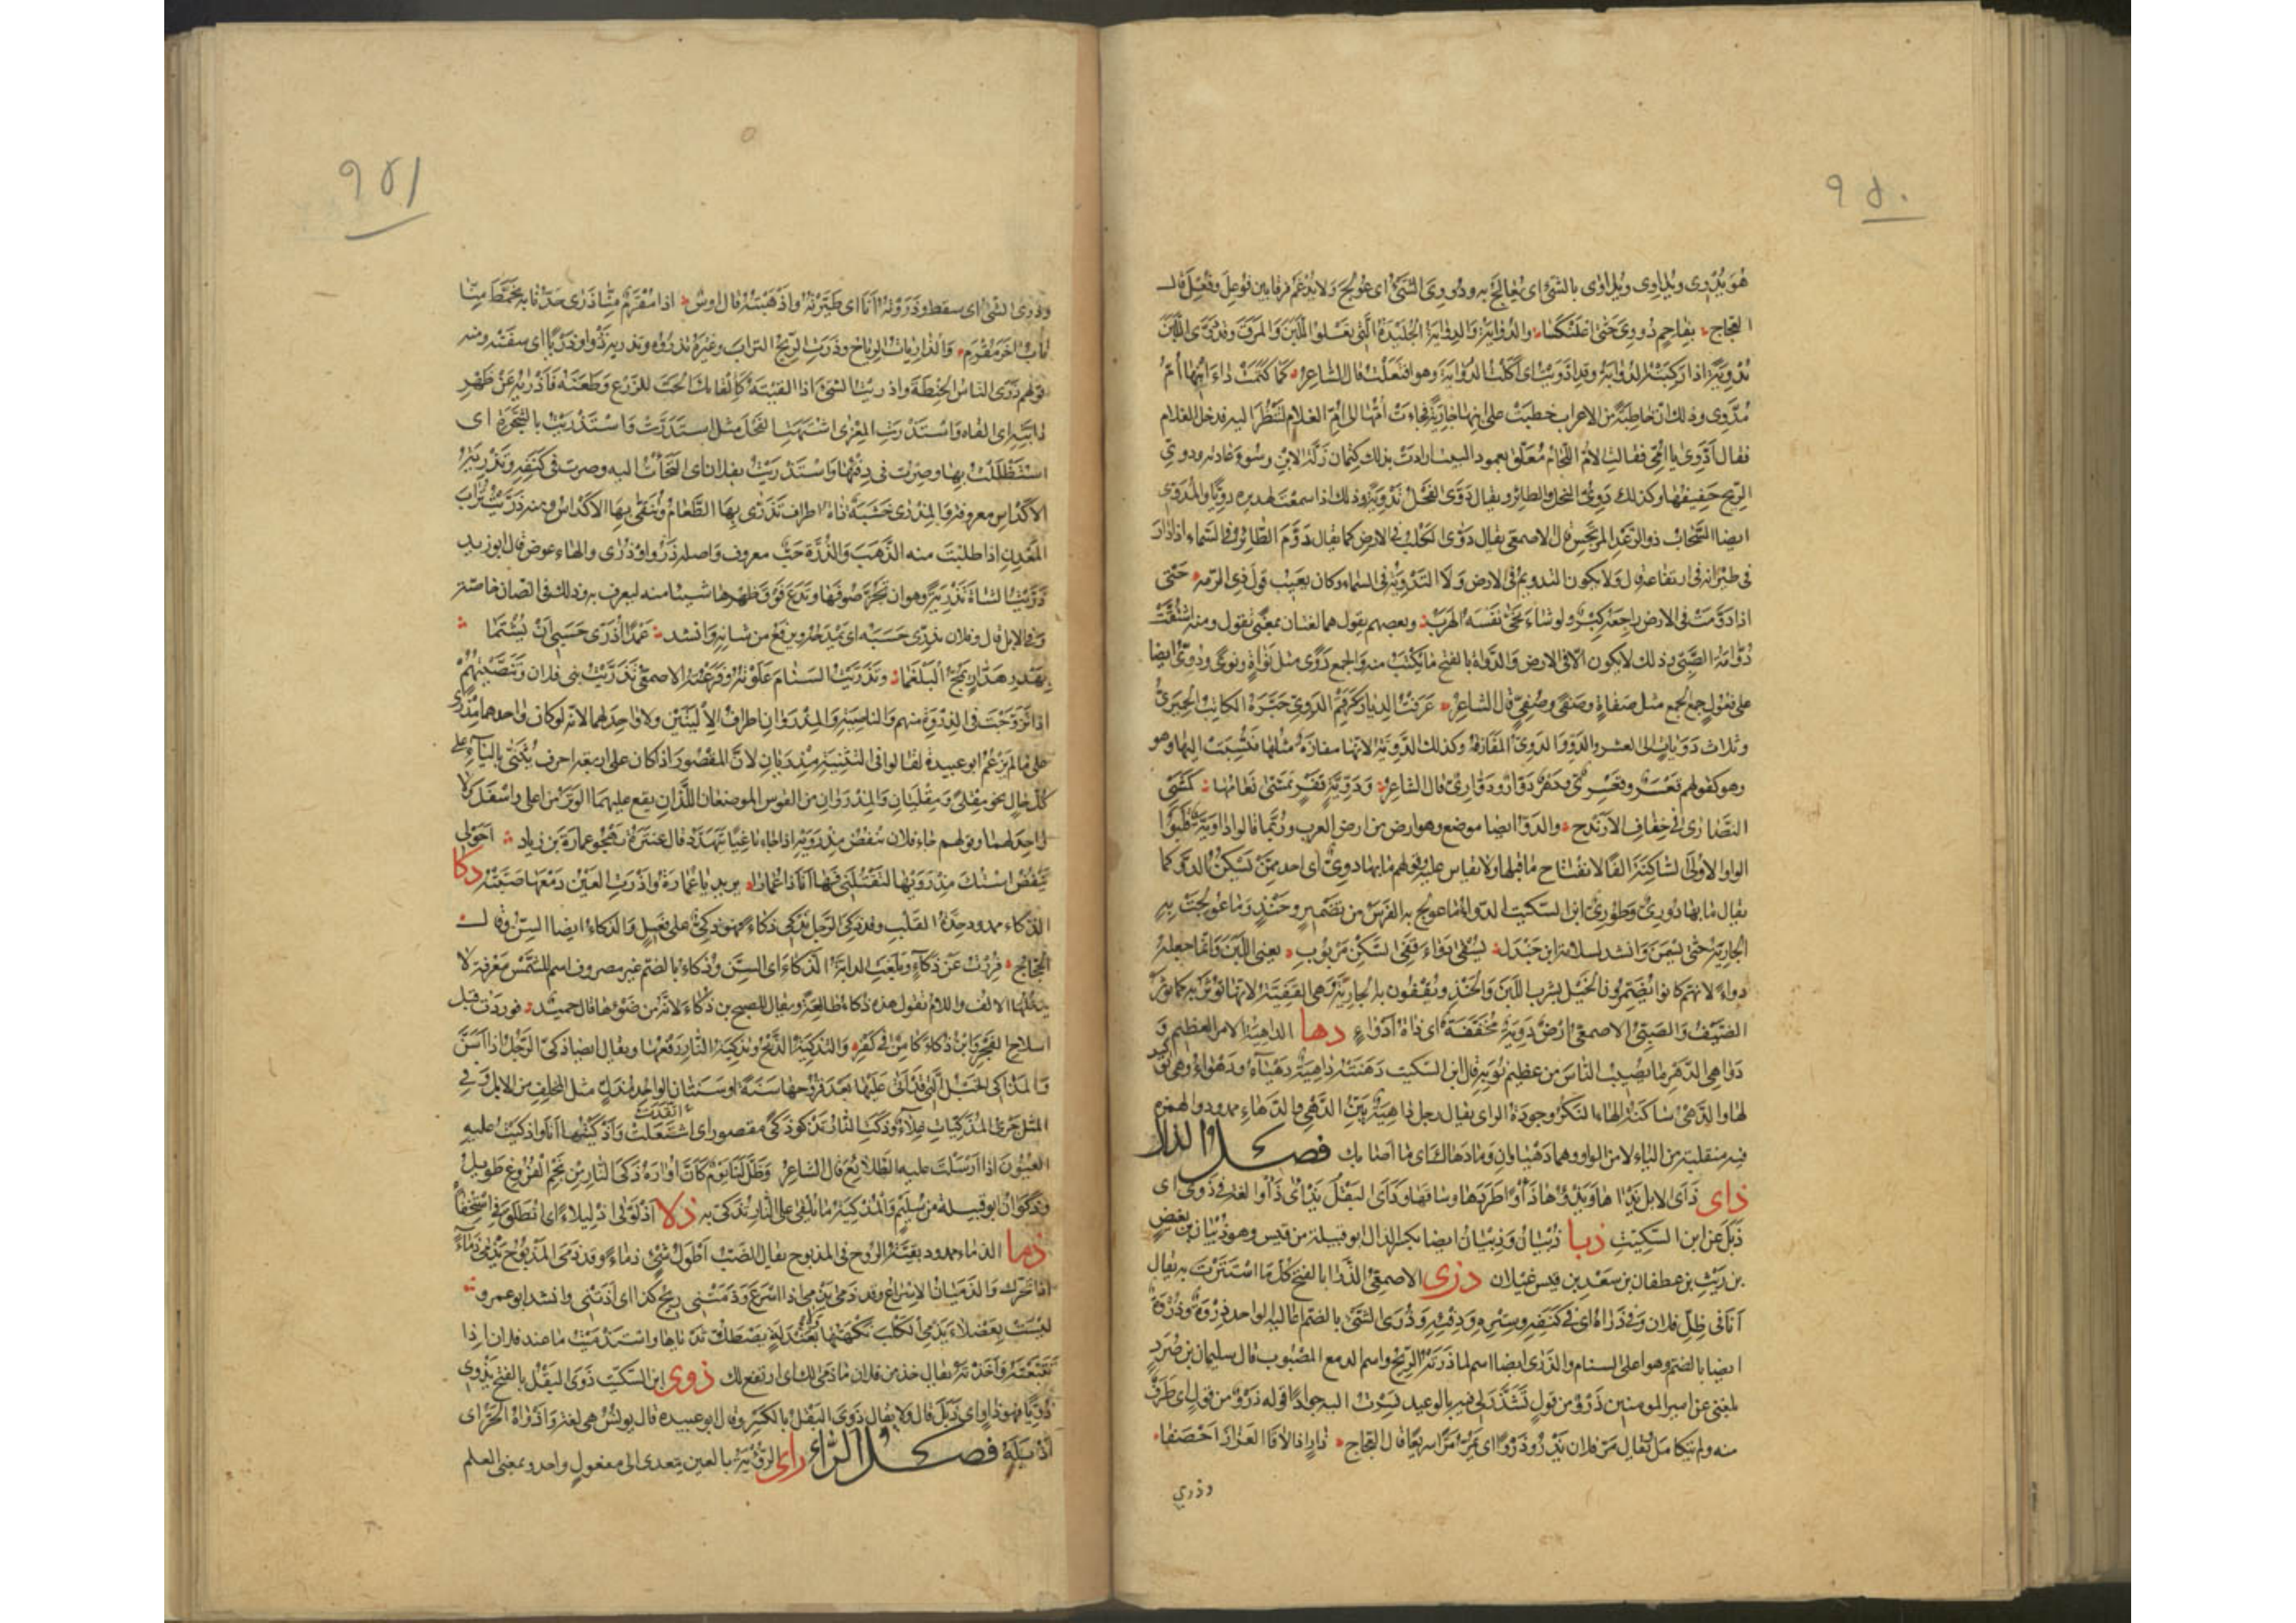 ٩٥٠
هو يُدْوِي ويُدَاوِي ويُدَاوَى بالشئ اى يُعَالَجُ به ودُووِىَ الشئُ اى عُولِجَ ولا يُدْغَمُ فرقا بين فُوعِلَ وفُعِّلَ قال
العجاج بفاحمٍ دُووِىَ حتى اعلنكسا والدُوَايَةُ والدِوَايَةُ الجُلَيدَةُ التى تعلو اللبنَ والمرقَ وقد دَوَّى اللبنُ
تدويةً اذا ركبته الدُوَايةُ وقد ادَّوَيْتُ اى اكلت الدُوَايَةَ وهو افتعلت قال الشاعر كما كتمت داءَ ابنِها أُمُّ
مُدَّوِى وذلك ان خاطبةً من الاعراب خطبت على ابنها جاريةً فجاءت أمّها الى امّ الغلام لتنظر اليه فدخل الغلام
فقال أَدَّوِى يا أمّى فقالت الأم اللجام معلّق بعمود البيت ارادت بذلك كتمان زلّة الابن وسوء عادته ودوىّ
الريح حفيفها وكذلك دَوِىُّ النحل والطائر ويقال دَوَّى الفحلُ تدويةً وذلك اذا سمعت لهديره دويًّا والمُدَوِّى
ايضا السحاب ذو الرعد المرتجس قال الاصمعى يقال دَوَّى الكلب فى الارض كما يقال دَوَّمَ الطائر فى السماء اذا دار
فى طيرانه فى ارتفاعه قال ولا يكون التدويم فى الارض ولا التدوية فى السماء وكان يعيب قول ذى الرمّه حتى
اذا دوّمت فى الارض راجعه كبر ولو شاء نجّى نفسه الهرب وبعضهم يقول هما لغتان بمعنًى يقول ومنه اشتقّت
دُوَّامَةُ الصبىّ وذلك لا يكون الا فى الارض والدواة بالفتح ما يكتب منه والجمع دَوًى مثل نواة ونوًى ودُوِىّ ايضا
على فعول جمع الجمع مثل صفاة وصفًى وصُفِىّ قال الشاعر عرفتُ الديارَ كرقم الدُوِىّ حَبَّرَهُ الكاتبُ الحميرىُّ
وثلاث دَوَيَاتٍ الى العشر والدَوُّ والدَوِىُّ المفازة وكذلك الدَوِّيَّةُ لانها مفازة مثلها فنسبت اليها وهو
وهو كقولهم قعسر وقعسرىّ ودهر دوّار ودوّارىّ قال الشاعر ودَوِّيَّةٍ قفرٍ تَمَشَّى نعامها كمشى
النصارى فى خفاف الارندج والدوّ ايضا موضع وهو ارض من ارض العرب وربما قالوا داويّة قلبوا
الواو الأولى الساكنة الفا لانفتاح ما قبلها ولا يقاس عليه وقولهم ما بها دوىّ اى احد ممّن يسكن الدوّ كما
يقال ما بها دورىّ وطورىّ ابن السكيت الدواء ما عولج به الفرس من تضمير وحنذ وما عولجت به
الجارية حتى تسمن وانشد لسلامة ابن جندل يسقى دواء قفىّ السكن مربوب يعنى اللبن وانما جعله
دواءً لانهم كانوا يضمرون الخيل بشرب اللبن والحنذ ويقفون به الجارية وهى القفيّة لانها تؤثر به كما يؤثر
الضيف والصبىّ الاصمعى ارض دَوِيَةٌ مخففة اى ذاة ادواء دها الداهية الامر العظيم و
دواهى الدهر ما يصيب الناس من عظيم نوبه قال ابن السكيت دهته داهية دهياء ودهواء وهى توكيد
لها والدهى ساكنة الهاء النكر وجودة الراى يقال رجل داهية بيّن الدهى والدهاء ممدود والهمزة
فيه منقلبة من الياء لا من الواو وهما دهياوان وما دهاك اى ما اصابك فصل الذال
ذاى ذَأَى الابل يذآها ويذؤها ذأوًا طردها وساقها وذأى البقل يذأى ذأوًا لغة فى ذوى اى
ذبل عن ابن السكيت ذبا ذُبيان وذِبيان ايضا بكسر الذال ابو قبيلة من قيس وهو ذبيان بن بغيض
بن ريث بن غطفان بن سعد بن قيس عيلان ذرى الاصمعى الذَرَا بالفتح كل ما استترت به يقال
انا فى ظل فلان وفى ذراه اى فى كنفه وستره ودفئه وذُرَى الشئ بالضم اعاليه الواحد ذِروة وذُروة
ايضا بالضم وهو اعلى السنام والذرى ايضا اسم لما ذرته الريح واسم الدمع المصبوب قال سليمان بن صرد
بلغنى عن امير المومنين ذَرْوٌ من قول تشذّر لى فيه بالوعيد فسرت اليه جوادًا قوله ذرو من قول اى طرف
منه ولم يتكامل يقال مرّ فلان يذرو ذروًا اى يمرّ مرًّا سريعا قال العجاج ذارٍ اذا لاقا العزاز احصفا
وذرى
٩٥١
وذرى الشئ اى سقط وذروته انا اى طيّرته واذهبته قال اوس اذا مقرم منّا ذرى حدّ نابه تخمّط منّا
ناب اخر مقرم والذاريات الرياح وذرت الريح التراب وغيره تذروه وتذريه ذروًا وذريًا اى سفته ومنه
قولهم ذرّى الناس الحنطة واذريت الشئ اذا القيته كالقائك الحب للزرع وطعنه فاذريه عن ظهر
دابّته اى القاه واستذرت المعزى اشتهت الفحل مثل استدرّت واستذريت بالشجرة اى
استظللت بها وصرت فى دفئها واستذريت بفلان اى التجأت اليه وصرت فى كنفه وتذرية
الاكداس معروفة والمِذرى خشبة ذاة اطراف تذرى بها الطعام وتنقّى بها الاكداس ومنه ذرّيت تراب
المعدن اذا طلبت منه الذهب والذُرَة حبّ معروف واصله ذرو او ذرى والهاء عوض قال ابو زيد
ذرّيت الشاة تذريةً وهو ان تجزّ صوفها وتدع فوق ظهرها شيئا منه ليعرف به وذلك فى الضان خاصّة
وفى الابل قال وفلان يذرّى حسبه اى يمدحه ويرفع من شانه وانشد عمدًا اذرّى حسبى ان يشتما
بهدر هدّار يمجّ البلغما وتذرّيت السنام علوته وفرعته الاصمعى تذرّيت بنى فلان وتنصّيتهم
اذا تزوّجت فى الذروة منهم والناصية والمِذرَوَان اطراف الأليتين ولا واحد لهما لانه لو كان واحدهما مذرى
على ما لم يزعم ابو عبيدة لقالوا فى التثنية مذريان لانّ المقصور اذا كان على اربعة احرف يثنّى بالياء على
كل حال نحو مقلى ومقليان والمذروان من القوس الموضعان اللذان يقع عليهما الوتر من اعلى واسفل ولا
واحد لهما وقولهم جاء فلان ينفض مذرويه اذا جاء باغيًا يتهدّد قال عنترة يهجو عمارة بن زياد احولى
تنفض استك مذرويها لتقتلنى فها انا ذا عمارا يريد يا عمارة واذرت العين دمعها صبّته ذكا
الذكاء ممدود حدّة القلب وقد ذكى الرجل يذكى ذكاءً فهو ذكىّ على فعيل والذكاء ايضا السنّ قال
الحجاج فررت عن ذكاءٍ وبلغت الدابة الذكاء اى السن وذُكاء بالضم غير مصروف اسم للشمس معرفة لا
يدخلها الالف واللام تقول هذه ذكاء طالعةً ويقال للصبح بن ذكاء لانّه من ضوئها قال حميد فوردت قبل
انبلاج الفجر وابن ذكاء كامن فى كفر والتذكية الذبح وتذكية النار رفعها ويقال ايضا ذكّى الرجل اذا اسنّ
والمذاكى الخيل التى قد اتى عليها بعد قروحها سنة او سنتان الواحد مذكٍّ مثل المخلف من الابل وفى
المثل جرى المذكّيات غلاء وذكت النار تذكو ذكًى مقصور اى اشتعلت واذكيتها انا واذكيت عليه
اتّقدت
العيون اذا ارسلت عليه الطلائع قال الشاعر وظلّ لنا يوم كأنّ اواره ذكى النار من نجم الفروغ طويل
وذكوان ابو قبيلة من سليم والمذكية ما يلقى على النار تذكّى به ذلا اذلولى اذليلاءً اى انطلق فى استخفاء
ذما الذماء ممدود بقيّة الروح فى المذبوح يقال الضب اطول شئ ذماءً وقد ذمى المذبوح يذمى ذماءً
اذا تحرك والذميان الاسراع وقد ذمى يذمى اذا اسرع وذمتنى ريح كذا اى اذتنى وانشد ابو عمرو
ليست بعصلاء يذمى الكلب نكهتها بعندلة يصطكّ ثدياها واستذميت ما عند فلان اذا
تتبّعته واخذته يقال خذ من فلان ما ذمى لك اى ارتفع لك ذوى ابن السكيت ذوى البقل بالفتح يذوى
ذويًّا فهو ذاوٍ اى ذبل قال ولا يقال ذوى البقل بالكسر وقال ابو عبيده قال يونس هى لغة واذواه الحرّ اى
اذبله فصل الراء راى الرؤية بالعين يتعدى الى مفعول واحد وبمعنى العلم